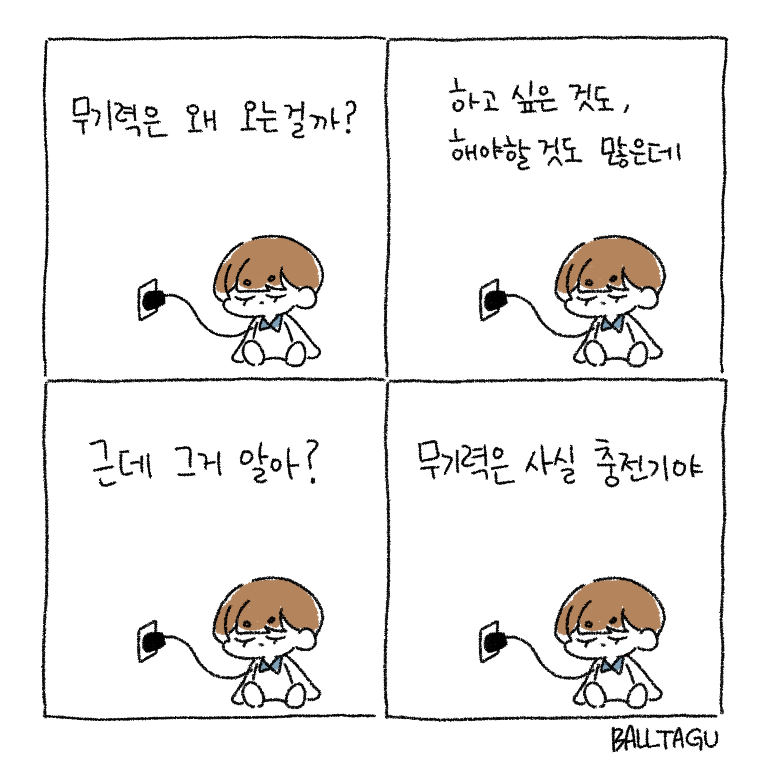 무기력은 왜 오는걸까?
하고 싶은 것도,
해야할 것도 많은데
근데 그거 알아?
무기력은 사실 충전기야
BALLTAGU